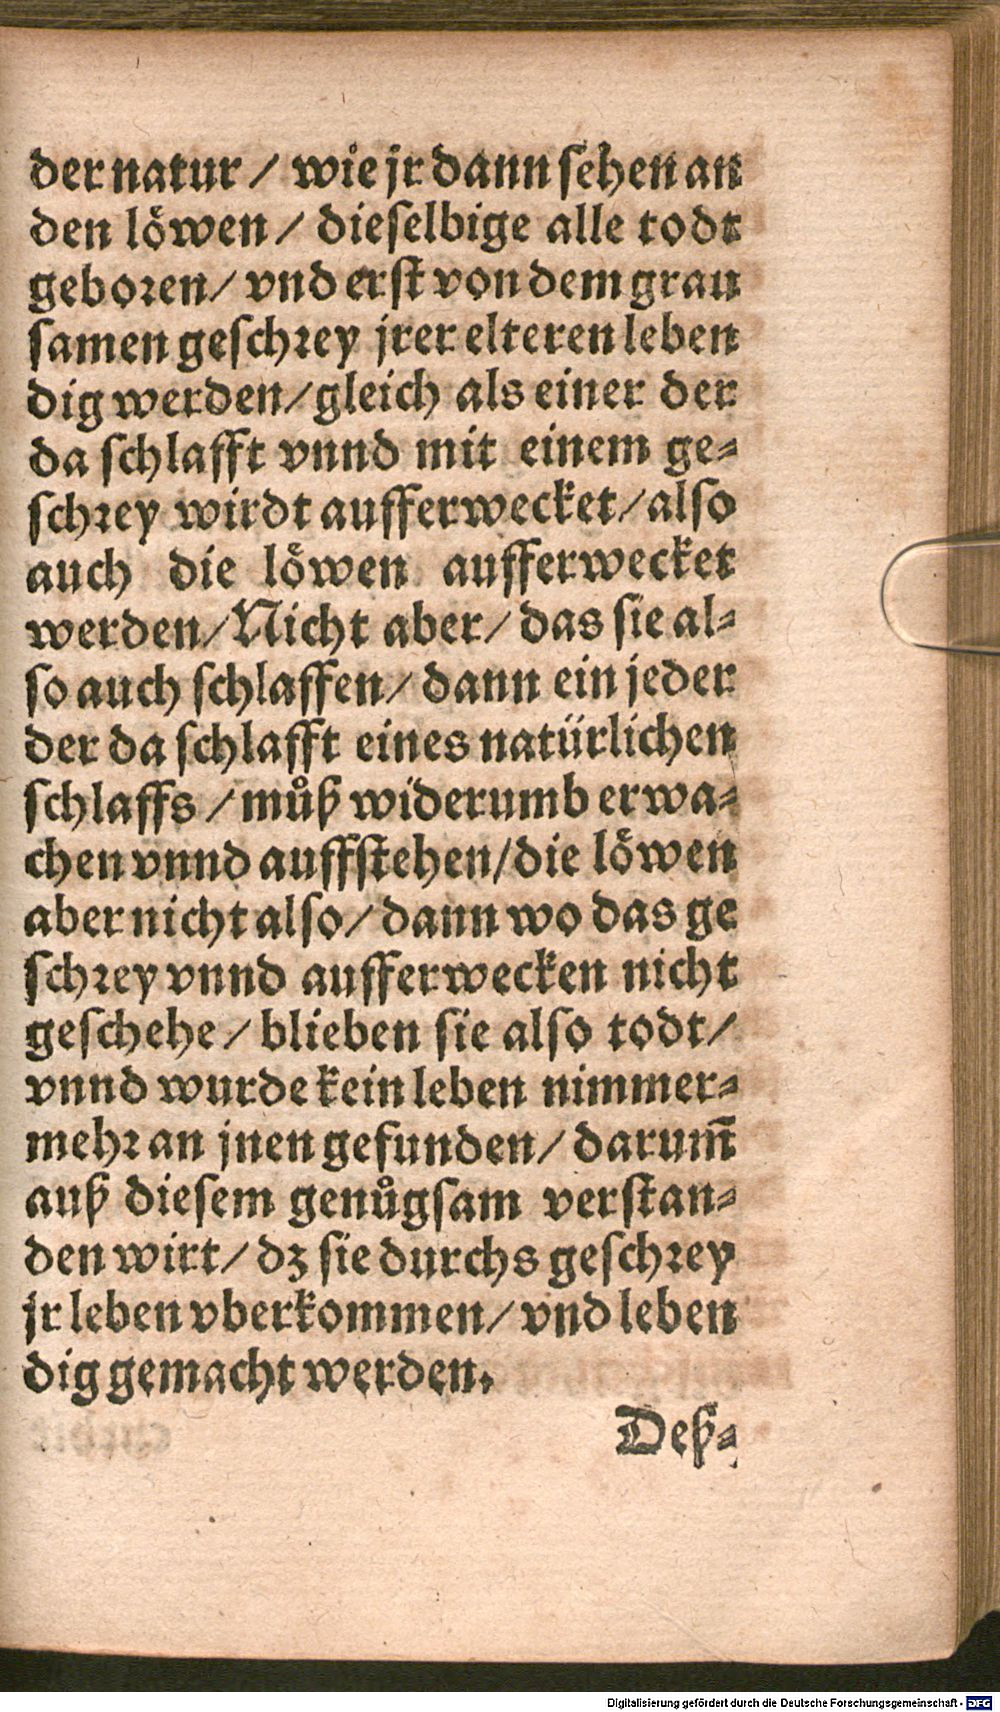 der natur / wie jr dann sehen an
den löwen / dieselbige alle todt
geboren / vnd erst von dem grau
samen geschrey jrer elteren leben
dig werden / gleich als einer der
da schlafft vnnd mit einem ge-
schrey wirdt aufferwecket / also
auch die löwen aufferwecket
werden / Nicht aber / das sie al-
so auch schlaffen / dann ein jeder
der da schlafft eines natürlichen
schlaffs / můß widerumb erwa-
chen vnnd auffstehen / die löwen
aber nicht also / dann wo das ge
schrey vnnd aufferwecken nicht
geschehe / blieben sie also todt /
vnnd wurde kein leben nimmer-
mehr an jnen gefunden / darum̄
auß diesem genůgsam verstan-
den wirt / dz sie durchs geschrey
jr leben vberkommen / vnd leben
dig gemacht werden.
Deß-
Digitalisierung gefördert durch die Deutsche Forschungsgemeinschaft - DFG